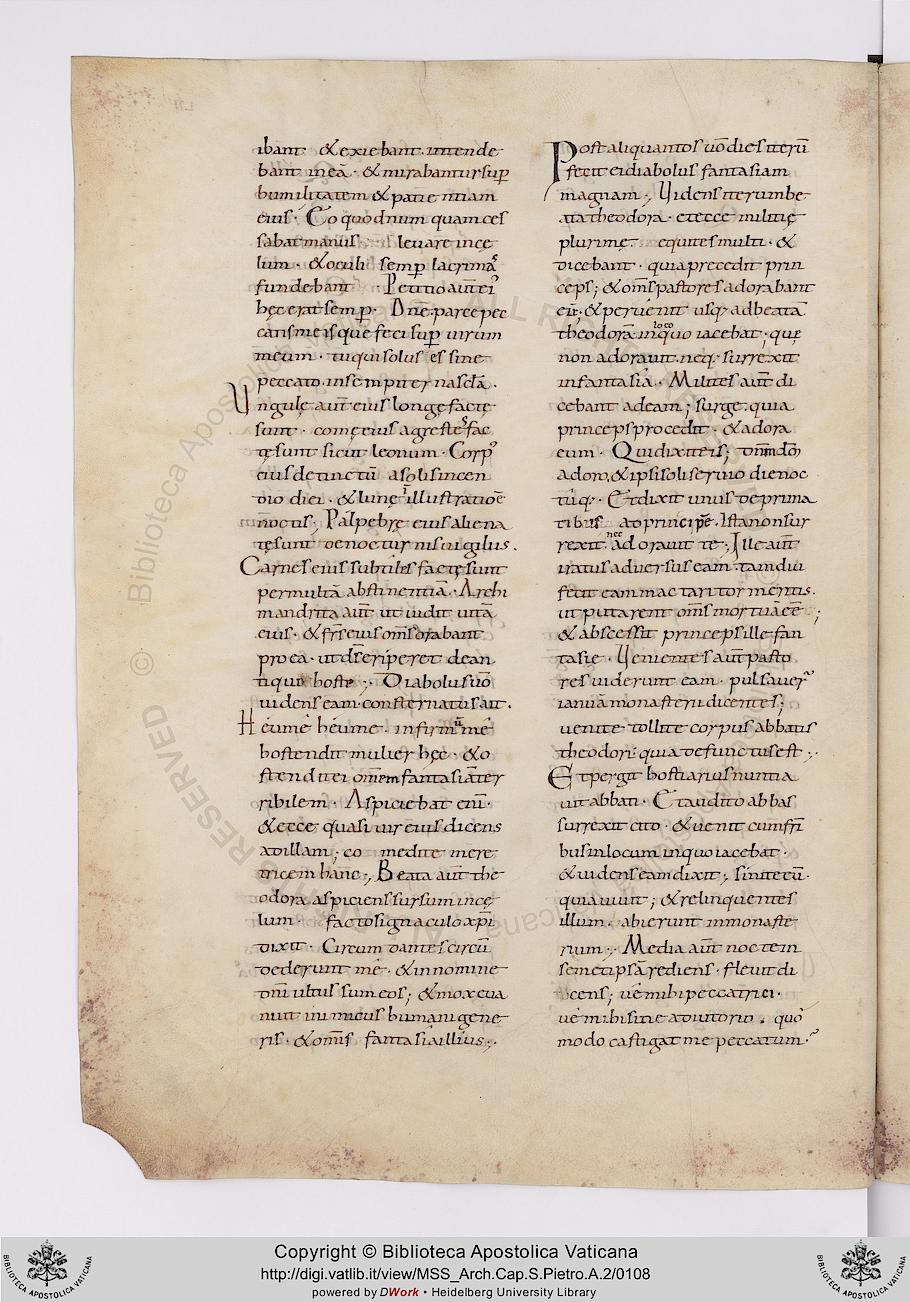 ibant · & exiebant. intende
bant in eā · & mirabantur sup̄
humilitatem & patientiam
eius · Eo quod numquam ces
sabat manus leuare in cę
lum · & oculi semp̄ lacrimas
fundebant Petitio aut̄ ei'
hęc erat semp̄ · Dn̄e parce pec
catis meis que feci sup̄ uirum
meum · tu qui solus es sine
peccato. in sempiterna scłā ·
Ungulę aut̄ eius longe factę
sunt · comę eius agrestes fac
tę sunt sicut leonum · Corp'
eius detinctū a solis incen
dio diei · & lunę illustratione
in noctis ; Palpebrę eius aliena
tę sunt de nocturnis uigiliis .
Carnes eius subtiles factę sunt
per multā abstinentiā · Archi
mandrita aut̄ ut uidit uitā
eius · & frs̄ eius om̄s orabant
pro ea · ut ds̄ eriperet de an
tiquo hoste ; Diabolus uō
uidens eam consternatus ait .
Heume heume · infirmū me
hostendit mulier hęc · & o
stendit ei omnem fantasiā ter
ribilem · Aspiciebat enī ·
& ecce quasi uir eius dicens
ad illam ; eo medite mere
tricem hanc ; Beata aut̄ the
odora aspiciens sursum in cę
lum · facto signaculo xp̄i
dixit · Circumdantes circū
dederunt me · & in nomine
dn̄i ultus sum eos ; & mox eua
nuit inimicus humani gene
ris · & om̄s fantasia illius ;
Post aliquantos uō dies iterū
fecit ei diabolus fantasiam
magnam ; Uidens iterum be
ata theodora · et ecce militię
plurimę · equites multi · &
dicebant · quia precedit prin
ceps ; & om̄s pastores adorabant
eū · & peruenit usq; ad beatā
theodorā in quo loco iacebat · quę
non adorauit. neq; surrexit
in fantasiā · Milites aut̄ di
cebant ad eam ; surge. quia
princeps procedit · & adora
eum · Qui dixit eis ; dn̄m dō
adoro, & ipsi soli seruio die noc
tuq; · Et dixit unus de prima
tibus ad principē · Ista non sur
rexit · nec adorauit te ; Ille aut̄
iratus aduersus eam. tam diu
fecit eam mactari tormentis.
ut putarent om̄s mortuā eē ;
& abscessit princeps ille fan
tasie · Uenientes aut̄ pasto
res uiderunt eam · pulsauer̄
ianuā monasterii dicentes ;
uenite tollite corpus abbatis
theodori · quia defunctus est ;
Et pergit hostiarius nuntia
uit abbati · Et audito abbas
surrexit cito · & uenit cum fr̄i
bus in locum in quo iacebat ·
& uidens eam dixit ; sinite eū ·
quia uiuit ; & relinquentes
illum · abierunt in monaste
rium ; Media aut̄ nocte in
semetipsā rediens · fleuit di
cens ; ue mihi peccatrici ·
ue mihi sine adiutorio . quo
modo castigat me peccatum ·
Copyright © Biblioteca Apostolica Vaticana
http://digi.vatlib.it/view/MSS_Arch.Cap.S.Pietro.A.2/0108
powered by DWork • Heidelberg University Library